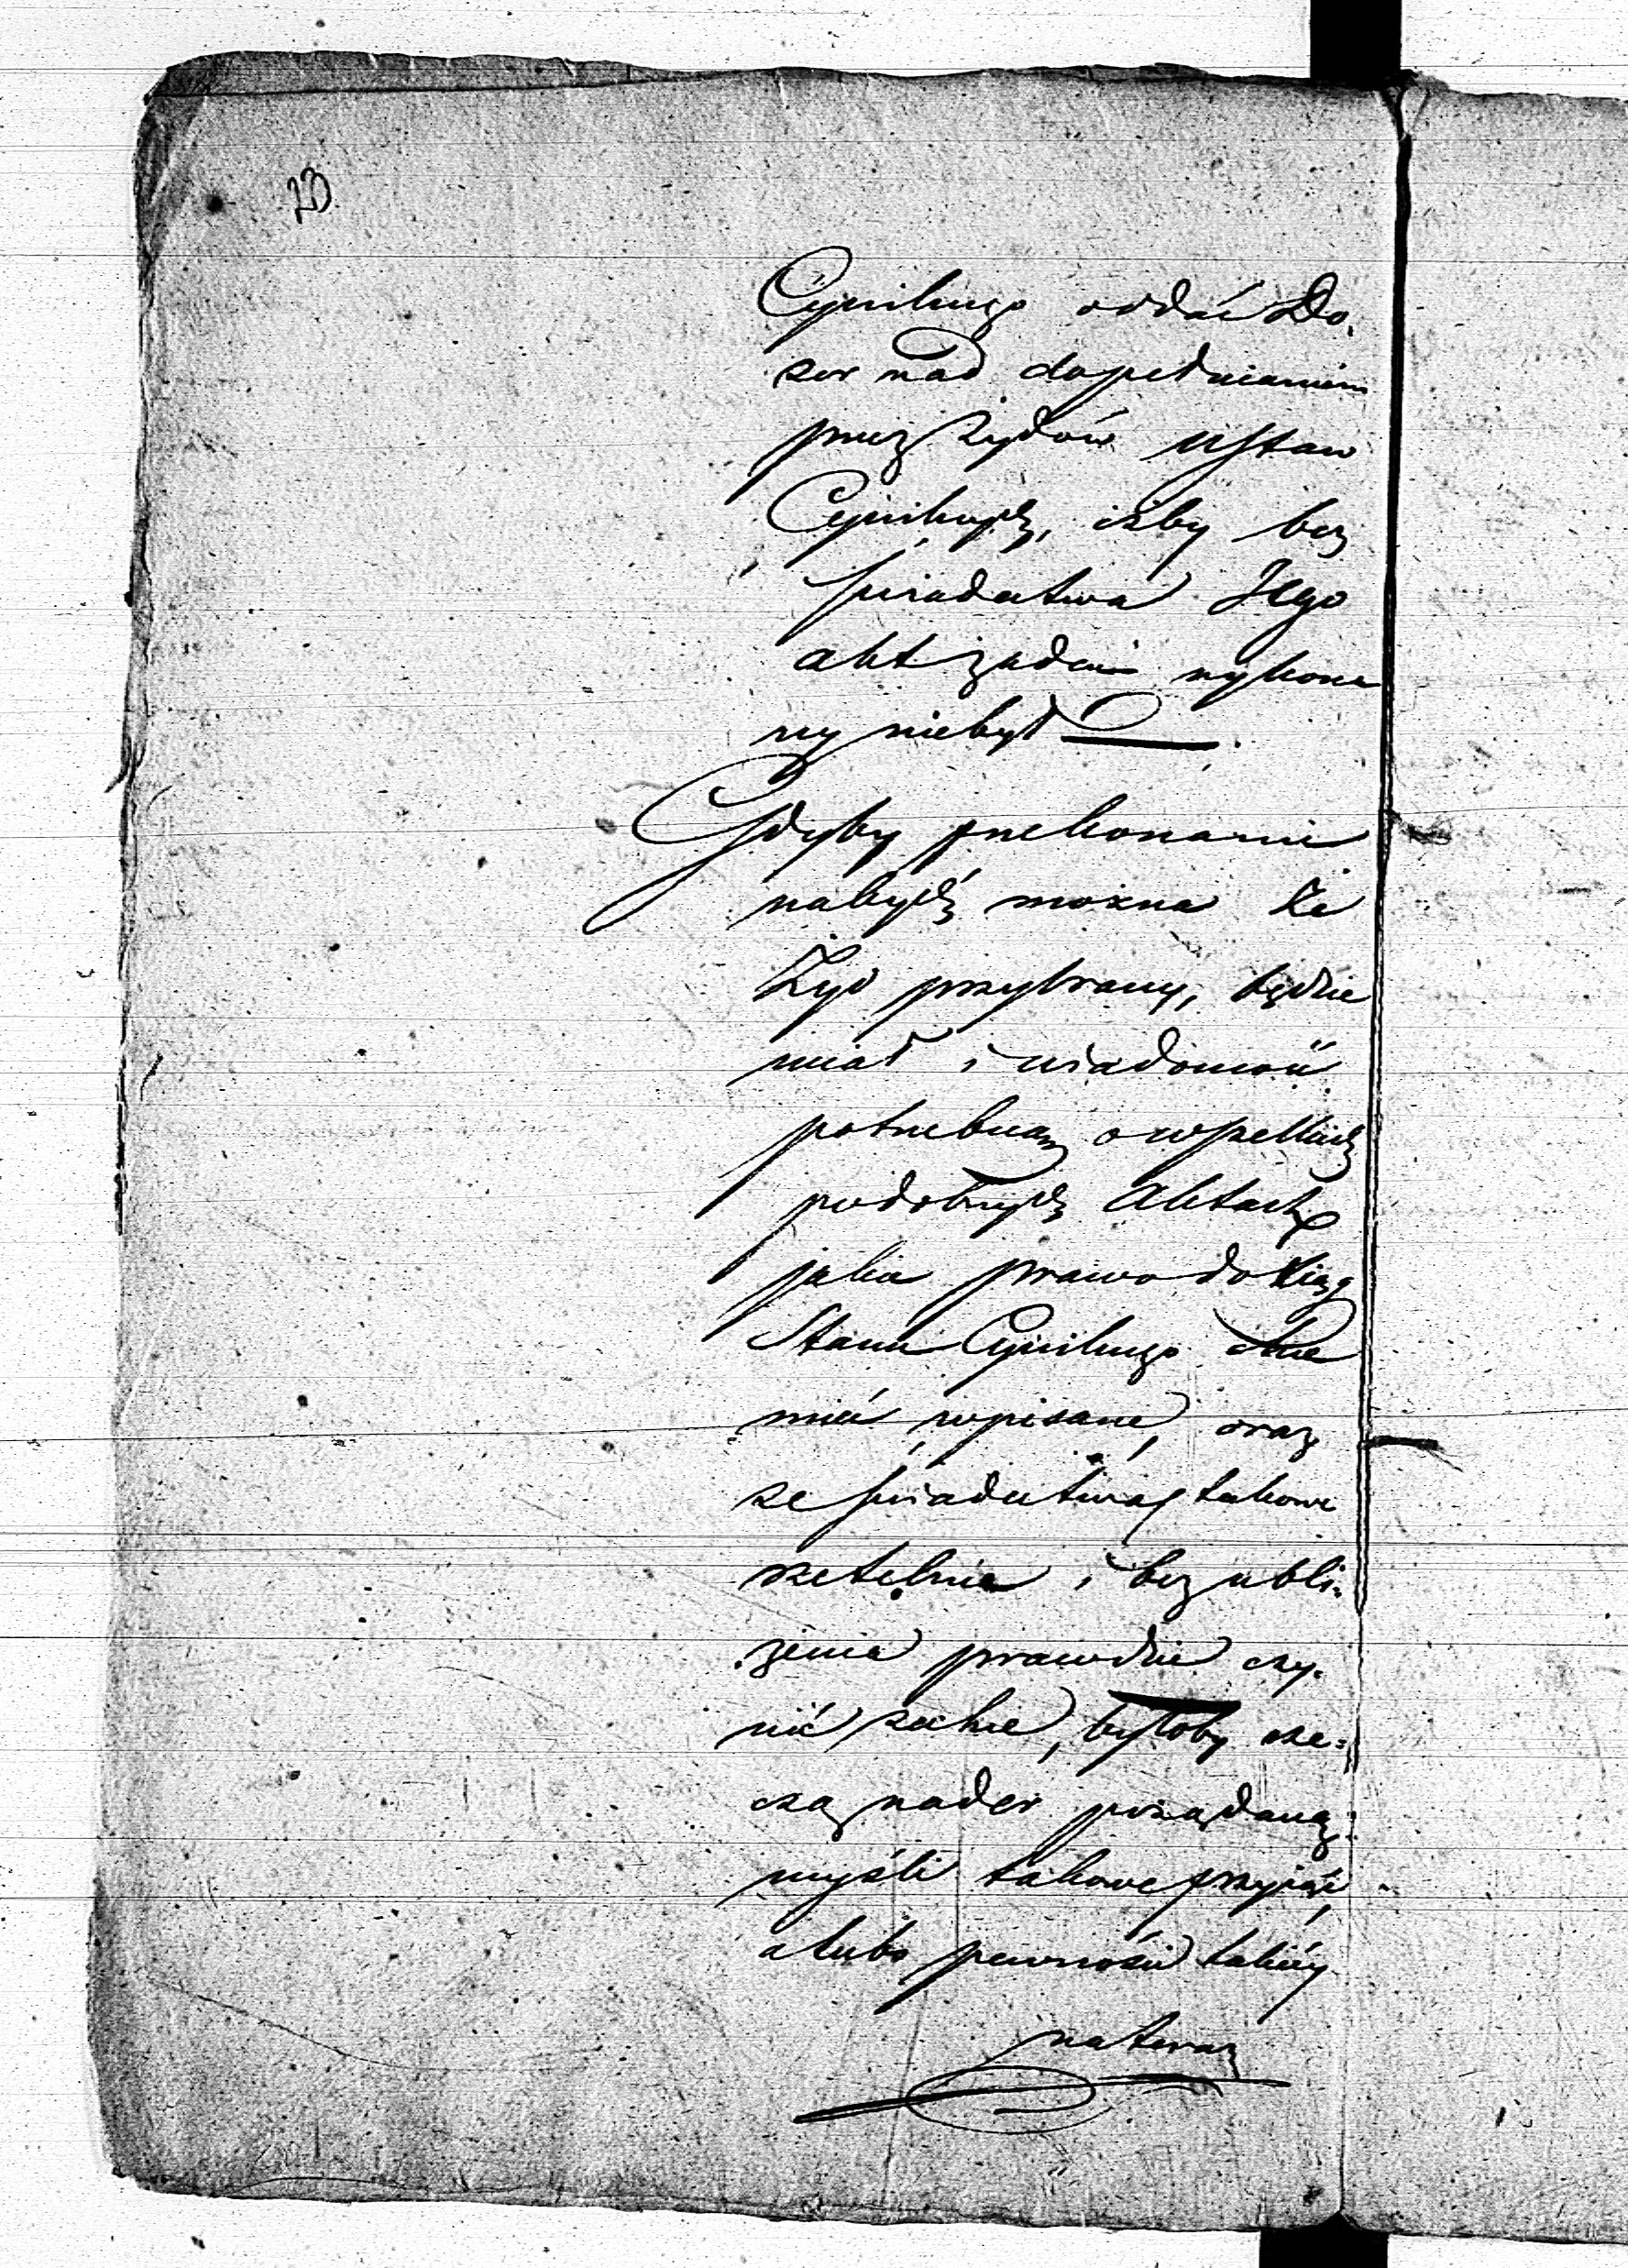 23
Cywilnego oddać Do„
zor nad dopełnianiem
przez Żydów Ustaw
Cywilnych, iżby bez
świadectwa Jego
akt żaden wykona
ny niebył
Gdyby przekonanie
nabydź można że
Żyd przybrany, będzie
miał i wiadomość
potrzebną o wszelkich
podobnych Aktach
jakie prawo do Xiąg
Stanu Cywilnego chce
mieć wpisane, oraz
że świadectwa takowe
rzetelnie i bez ubli„
żenia prawdzie czy„
nić zechce, byłoby rze„
czą nader pożądaną
myśli takowe przyjąć
alubo pewności takiéy
na teraz